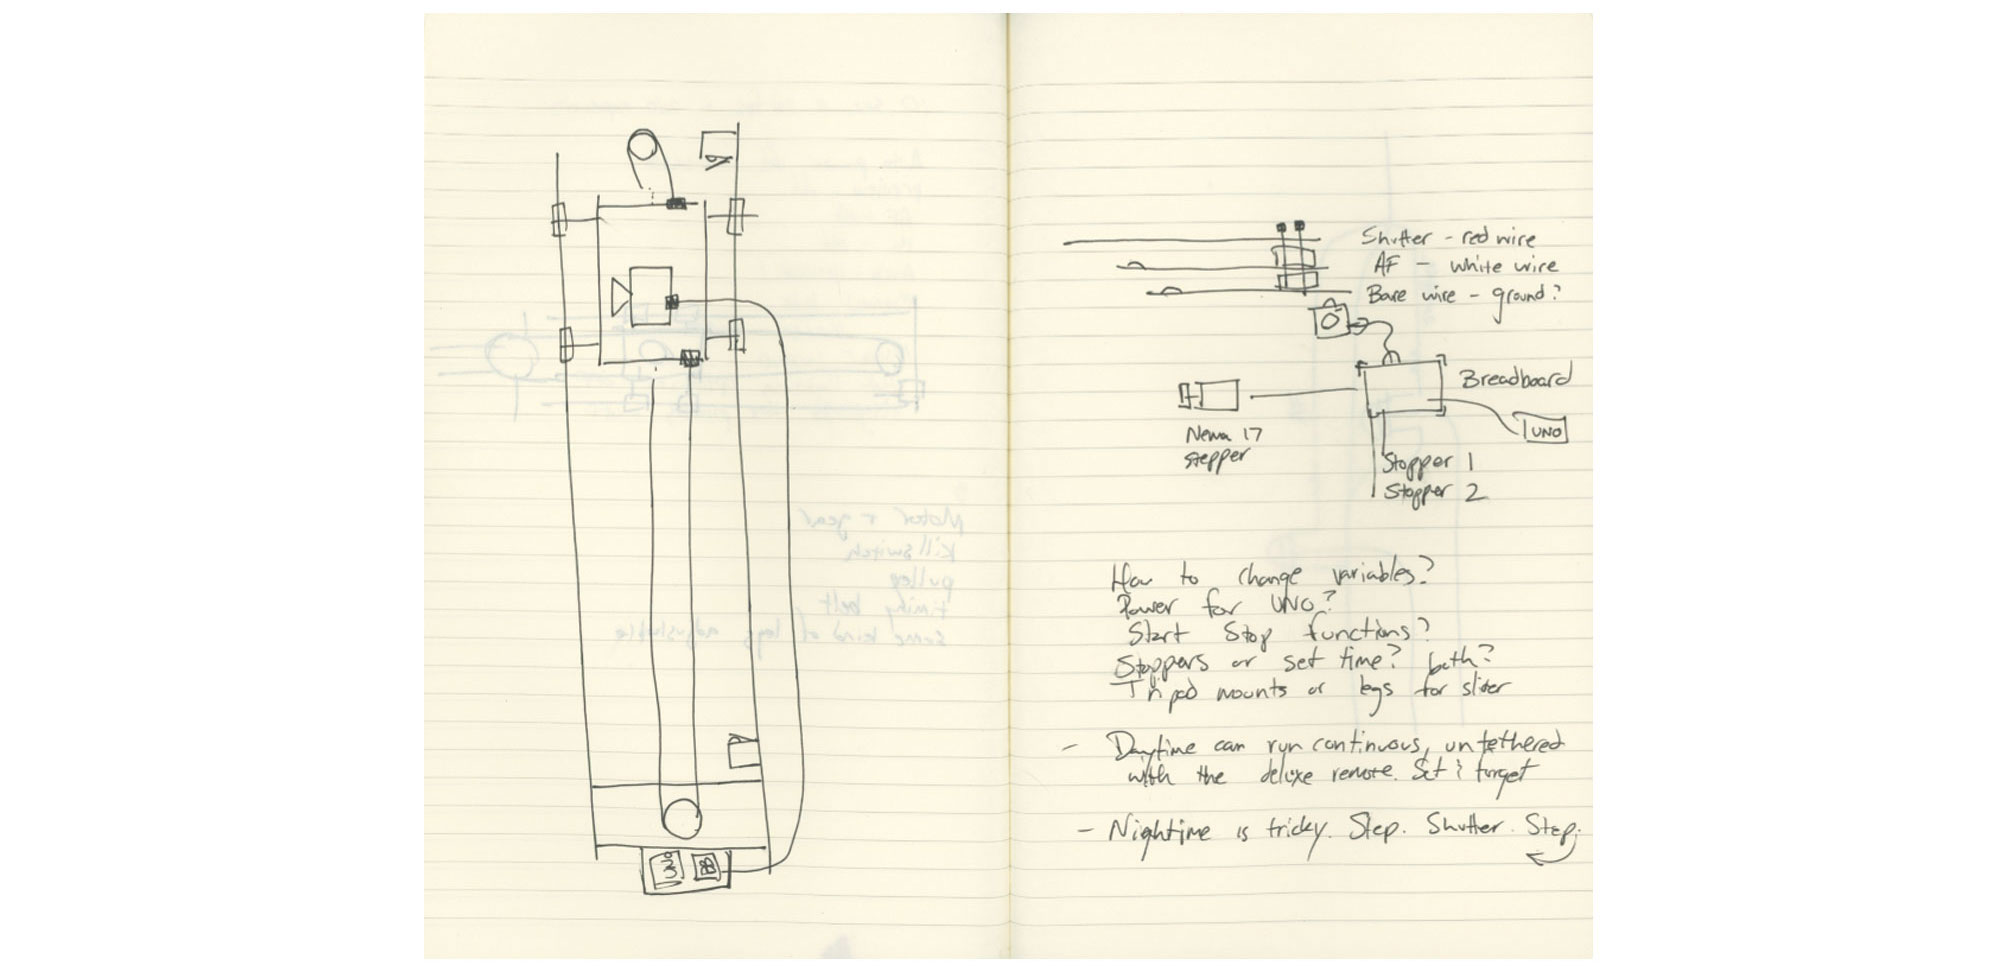 UNO
BB
Shutter - red wire
AF - white wire
Bare wire - ground?
Breadboard
UNO
Nema 17
stepper
Stopper 1
Stopper 2
How to change variables?
Power for UNO?
Start Stop functions?
Stoppers or set time? both?
Tripod mounts or legs for slider
- Daytime can run continuous, untethered
with the deluxe remote. Set & forget
- Nightime is tricky. Step. Shutter. Step.
Motor + gear
Kill switch
pulley
timing belt
some kind of legs adjustable